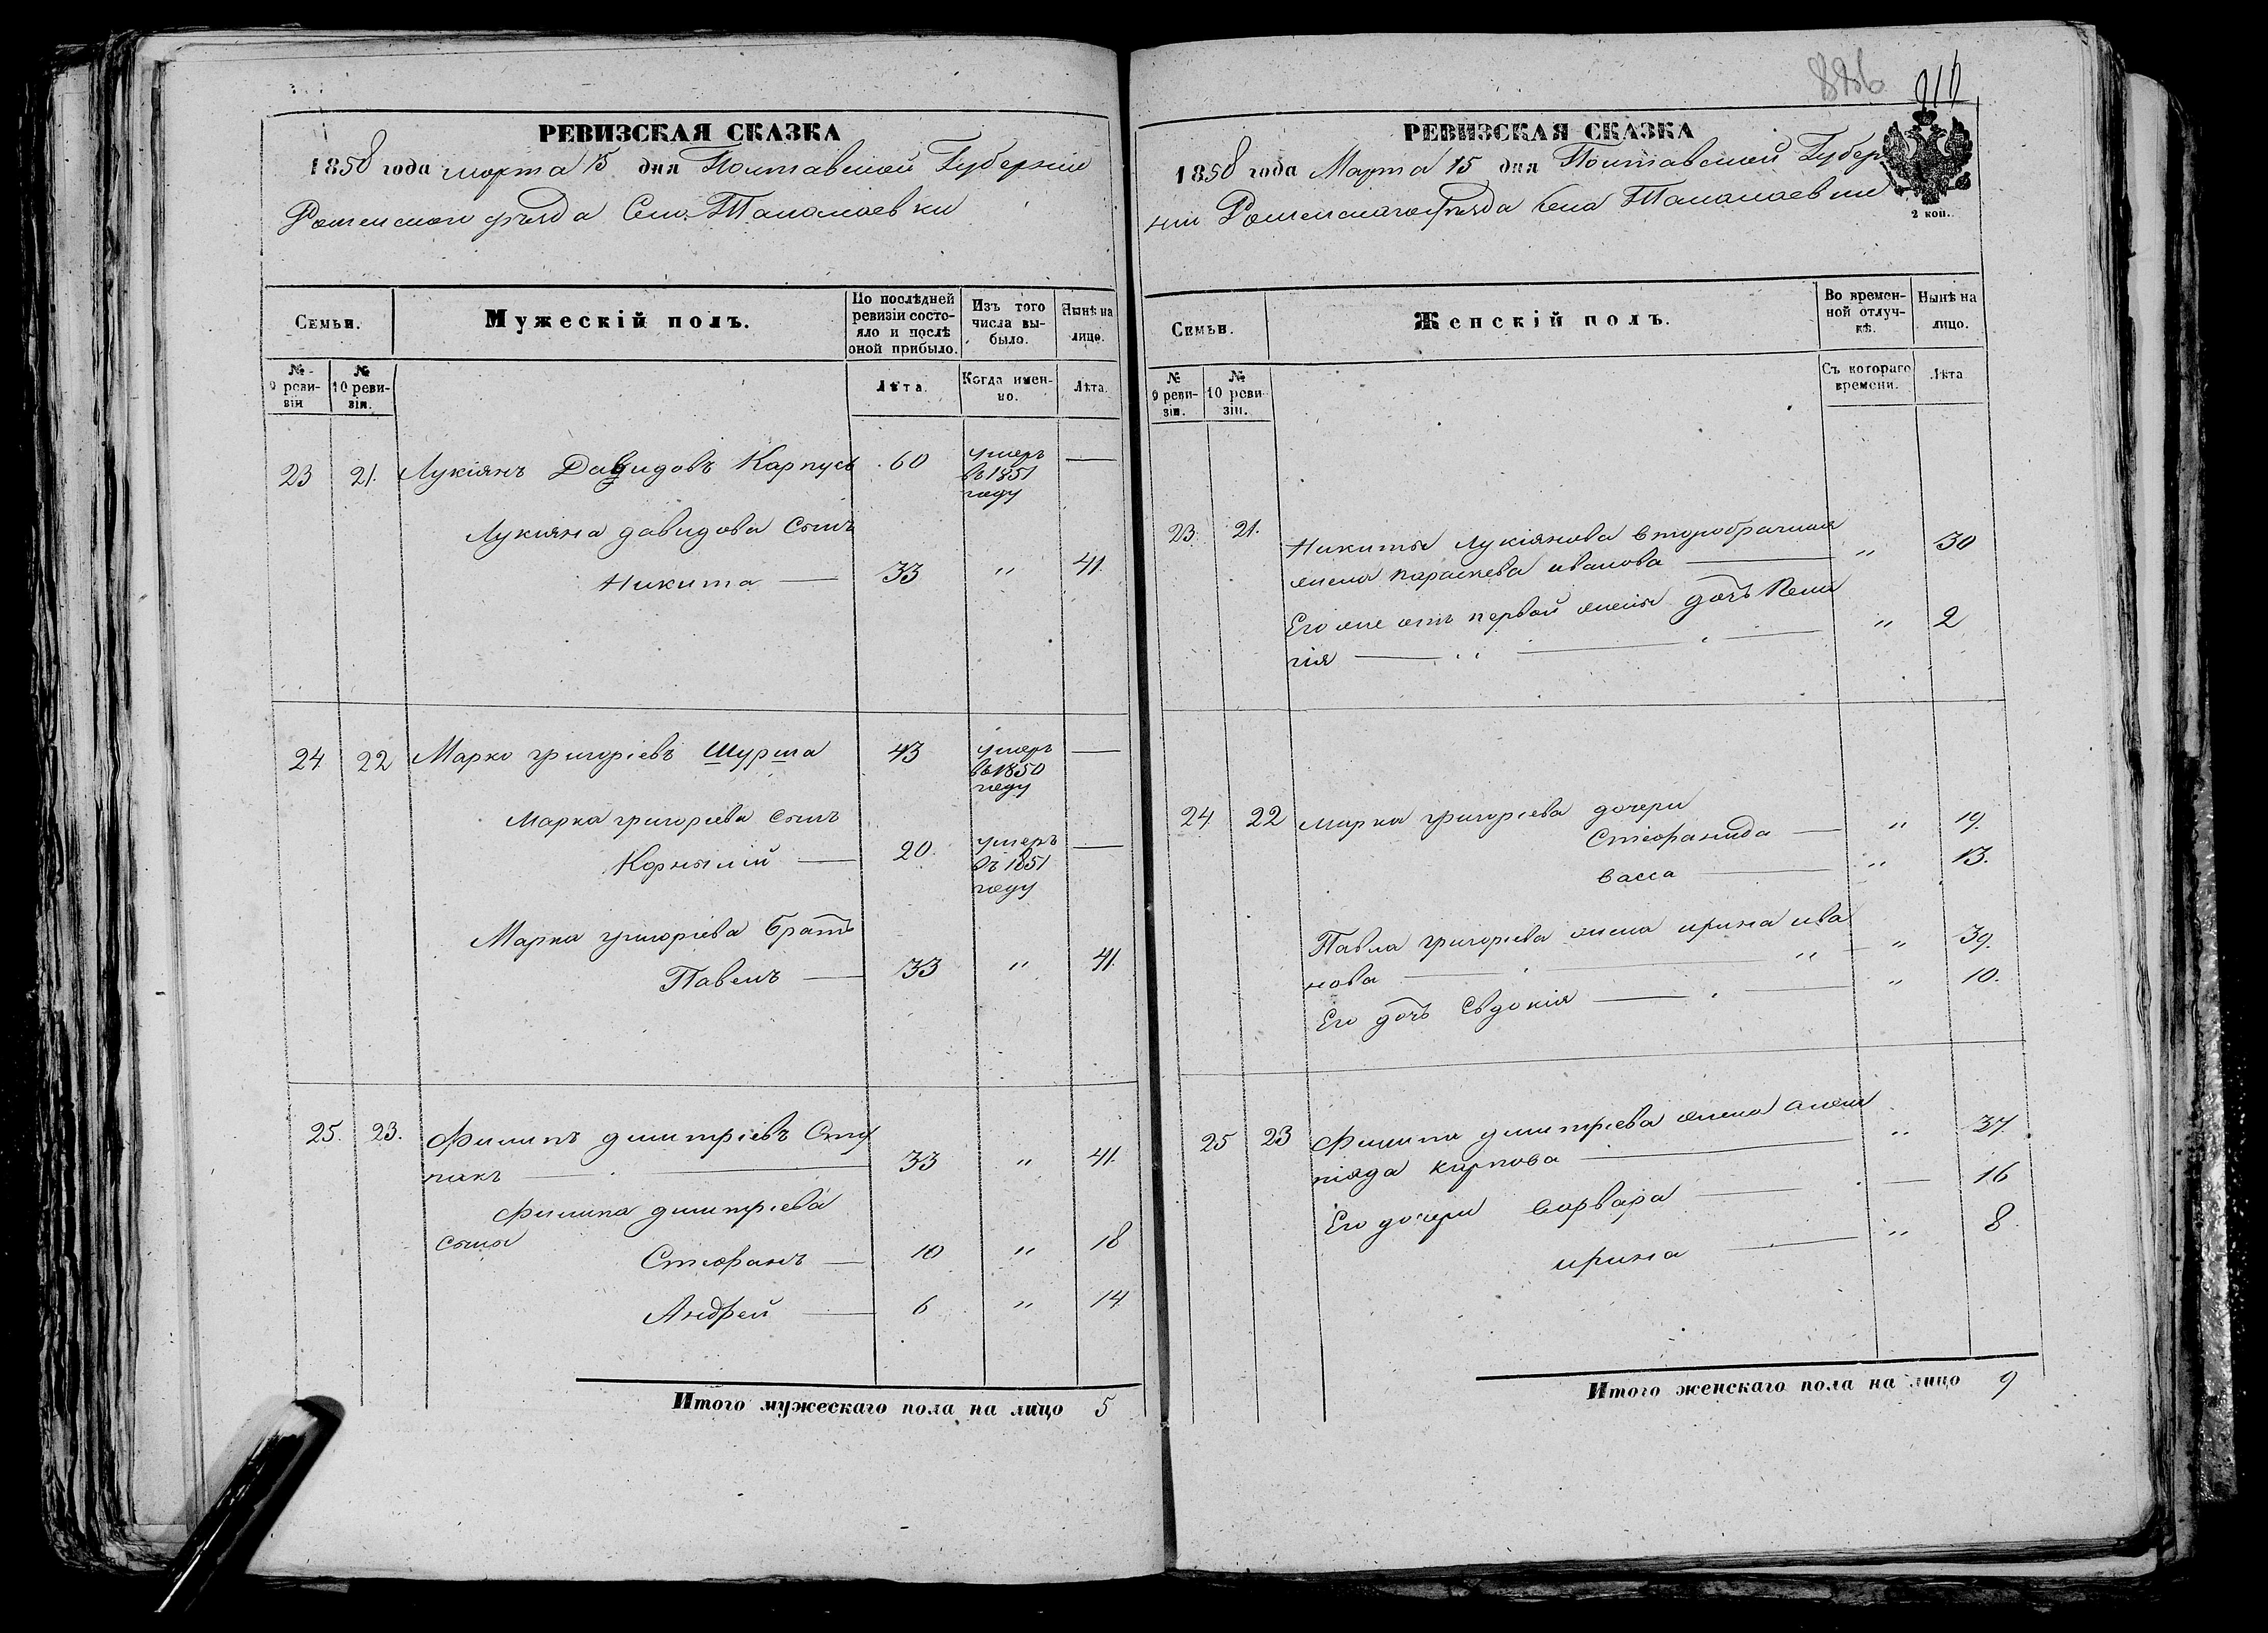 РЕВИЗСКАЯ СКАЗКА
1858 года марта 15 дня Полтавской Губерніи
Роменского уѣзда Села Таламаевки
Семьи.
Мужескій полъ.
По послѣдней ревизіи состояло и послѣ оной прибыло.
Изъ того числа выбыло.
Нынѣ на лицо.
№ 9 ревизіи
№ 10 ревизіи.
Лѣта.
Когда именно.
Лѣта.
23 21. Лукіянъ Давидовъ Карпусь 60 умеръ въ 1851 году —
Лукіяна давидова Сынъ
Никита — 33 " 41.
24 22 Марко григоріевъ Шурша 43 умеръ въ 1850 году —
Марка григоріева сынъ
Корнилій — 20. умеръ въ 1851 году —
Марка григоріева братъ
Павелъ — 33 " 41.
25. 23. Филипъ дмитріевъ Сту
пакъ — 33 " 41.
Филипа дмитріева
сыны
Стефанъ — 10 " 18
Андрей — 6 " 14
Итого мужескаго пола на лицо 5
886
РЕВИЗСКАЯ СКАЗКА
1858 года Марта 15 дня Полтавской Губер
ніи Роменскаго уѣзда Села Таламаевки
2 коп.
Семьи.
Женскій полъ.
Во временной отлучкѣ.
Нынѣ на лицо.
№ 9 ревизіи.
№ 10 ревизіи.
Съ котораго времени.
Лѣта
23. 21. Никиты Лукіянова второбрачная
жена параскева иванова — " 30
Его же отъ первой жены дочь Пела
гія — " 2
24 22 марка григоріева дочери
Стефанида — " 19.
васса — " 13.
Павла григоріева жена ирина ива
нова — " 39.
Его дочь Евдокія — " 10.
25 23 Филипа дмитріева жена олим
піяда карпова — " 37.
Его дочери варвара — 16
ирина — " 8.
Итого женскаго пола на лицо 9